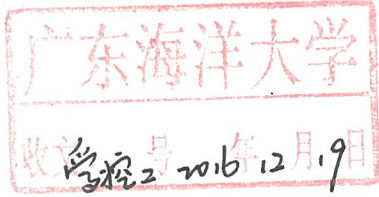 广东海洋大学
收文 号 年 月 日
2016 12 19